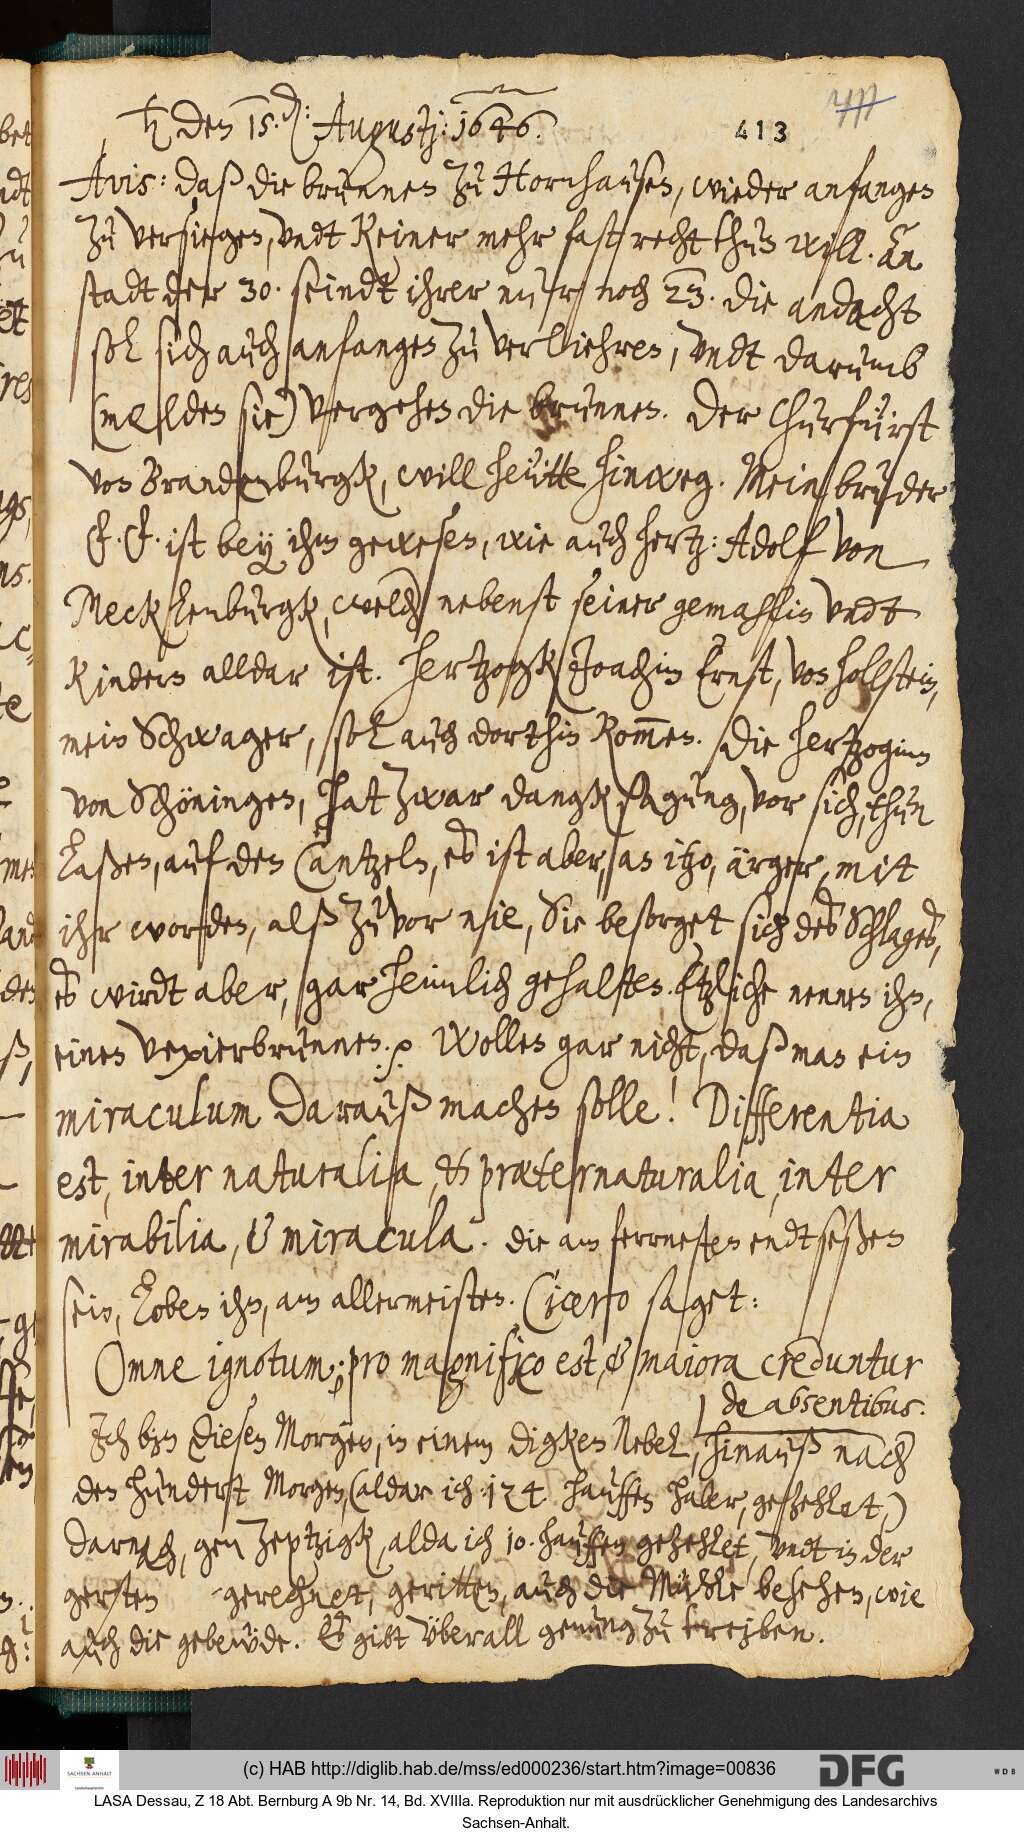 ♄ den 15.d: Augustj: 1646.
413
Avis: daß die brunnen zu Hornhausen, wieder anfangen
zu versiegen, vndt keiner mehr fast recht thun will. An
stadt der 30. seindt ihrer nur noch 23. die andacht
sol sich auch anfangen zu verliehren, vndt darumb
(melden sie) vergehen die brunnen. Der Churfürst
von Brandenburgk, will heütte hinweg. Mein bruder
F. F. ist bey ihm gewesen, wie auch hertz: Adolf von
Mecklenburgk, welch nebenst seiner gemahlin vndt
Kindern alldar ist. Hertzogk Joachim Ernst, von hollstein,
mein Schwager, sol auch dorthin kom̅en. Die Hertzoginn
von Schöningen, hat zwar dangksagung, vor sich, thun
laßen, auf den Cantzeln, es ist aber, an itzo, ärger, mit
ihr worden, alß zuvor nie, Sie besorget sich des Schlages,
es wirdt aber, gar heimlich gehalten. Etzliche nennen ihn,
einen Vexierbrunnen. Wollen gar nicht, daß man ein
miraculum darauß machen solle! Differentia
est, inter naturalia, & præternaturalia, inter
mirabilia, & miracula. Die am ferrnesten endtseßen
sein, loben ihn, am allermeisten. Cicero saget:
Omne ignotum, pro magnifico est, & maiora creduntur
de absentibus.
Ich bin diesen Morgen, in einem digken Nebel, hinauß nach
den hundert Morgen, (aldar ich 124 hauffen haber, gezehlet,)
darnach, gen Zeptzigk, alda ich 10. hauffen gezehlet, vndt in der
gersten gerechnet, geritten, auch die Mühle besehen, wie
auch die gebeüde. Es gibt vberall genung zu treiben.
(c) HAB http://diglib.hab.de/mss/ed000236/start.htm?image=00836
SACHSEN-ANHALT
DFG
WDB
LASA Dessau, Z 18 Abt. Bernburg A 9b Nr. 14, Bd. XVIIIa. Reproduktion nur mit ausdrücklicher Genehmigung des Landesarchivs
Sachsen-Anhalt.